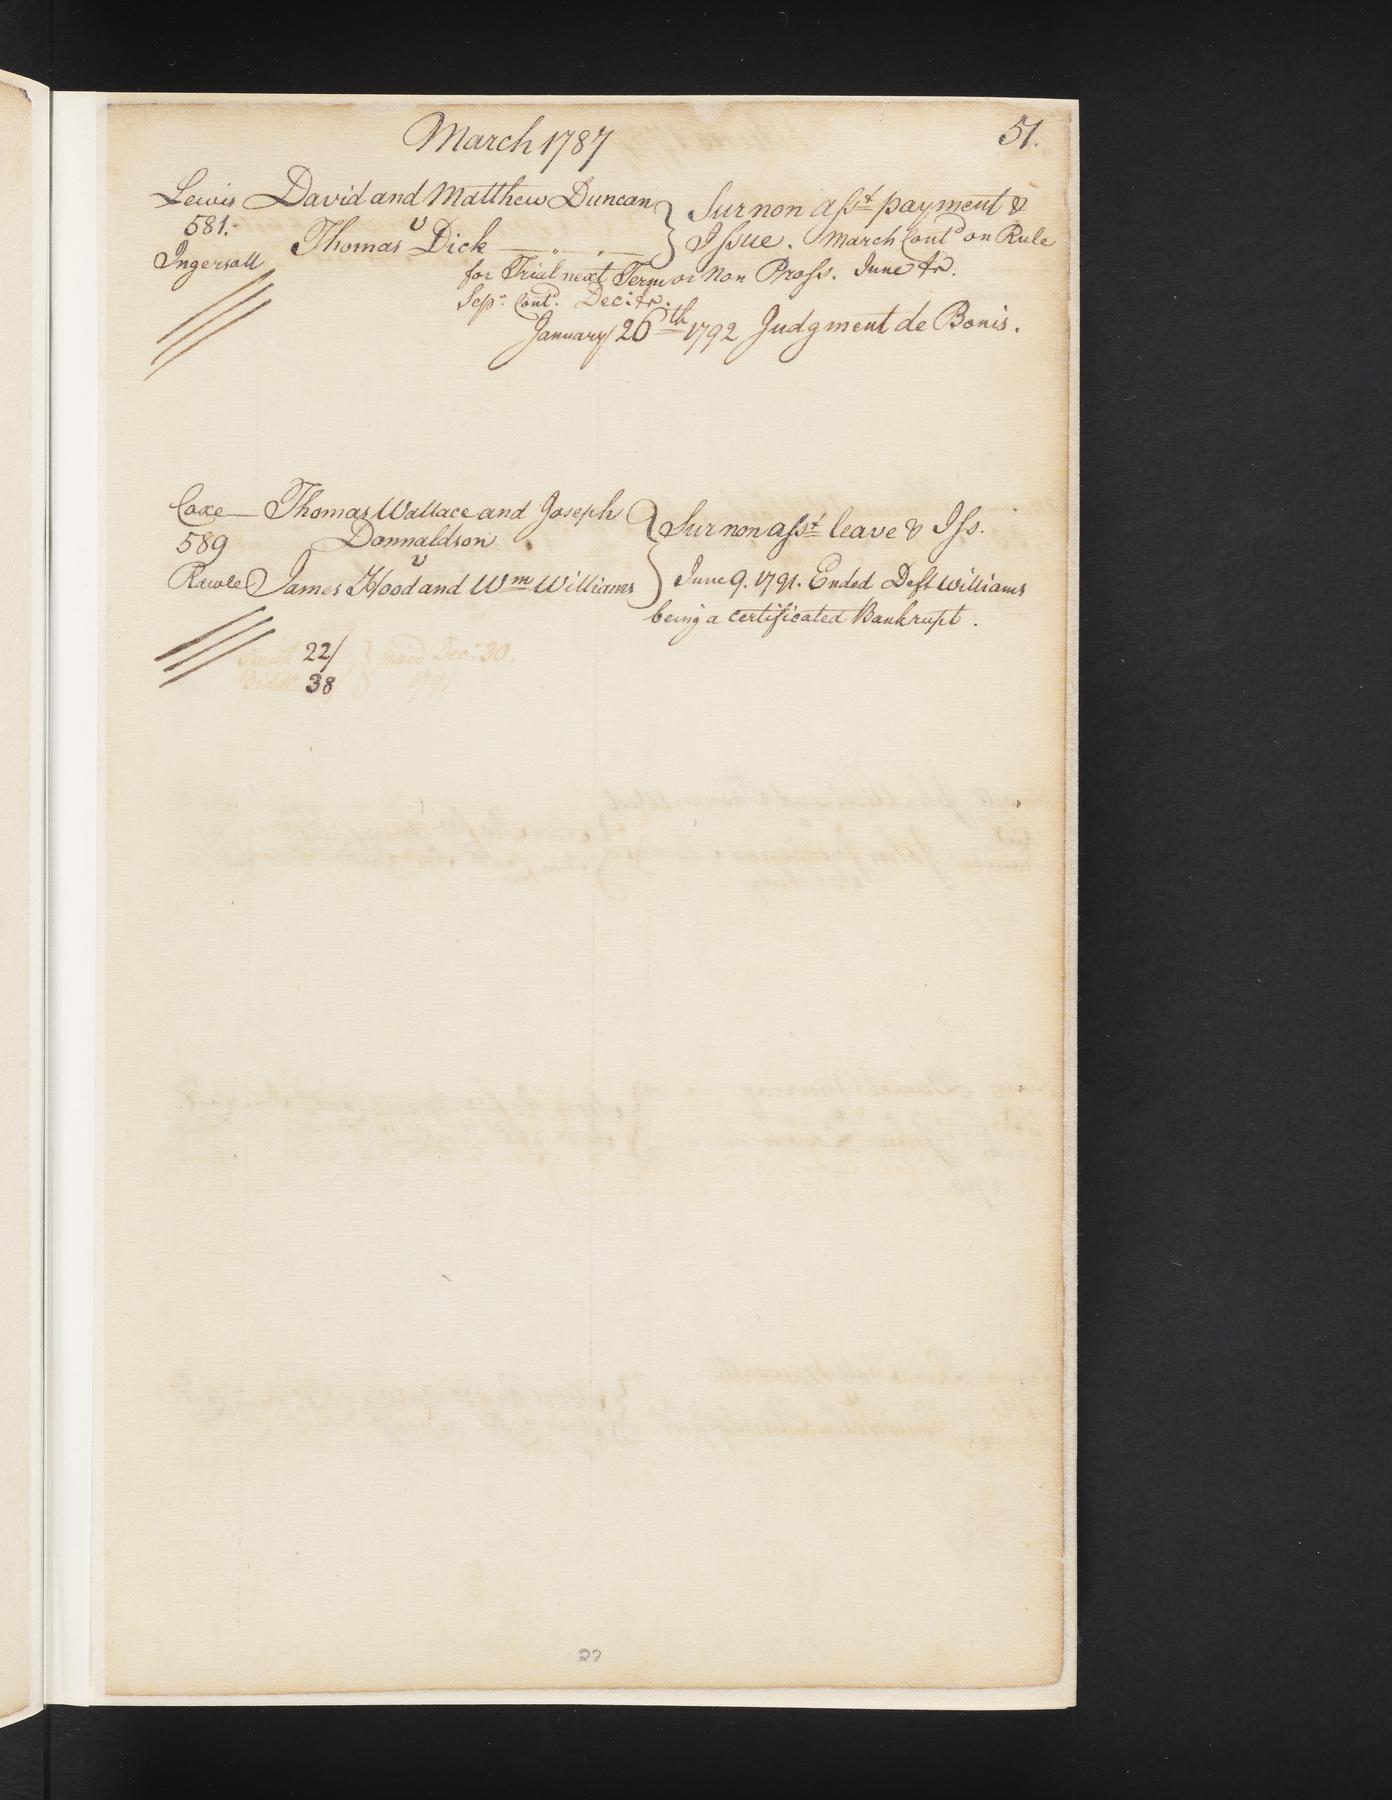 March 1787
51.
Lewis David and Matthew Duncan } Sur non asst payment &
581. v Issue. March Contd on Rule
Ingersoll Thomas Dick
for Trial next Term or Non Pross. June do.
Sepr. Contd. Dec: do.
January 26th 1792 Judgment de Bonis.
Coxe Thomas Wallace and Joseph } Sur non asst leave & Iss.
589 Donnaldson
v
Rawle James Hood and Wm Williams June 9. 1791. Ended Deft Williams
being a certificated Bankrupt.
Smith 22/ } paid Dec. 30.
Biddle 38 1791
27